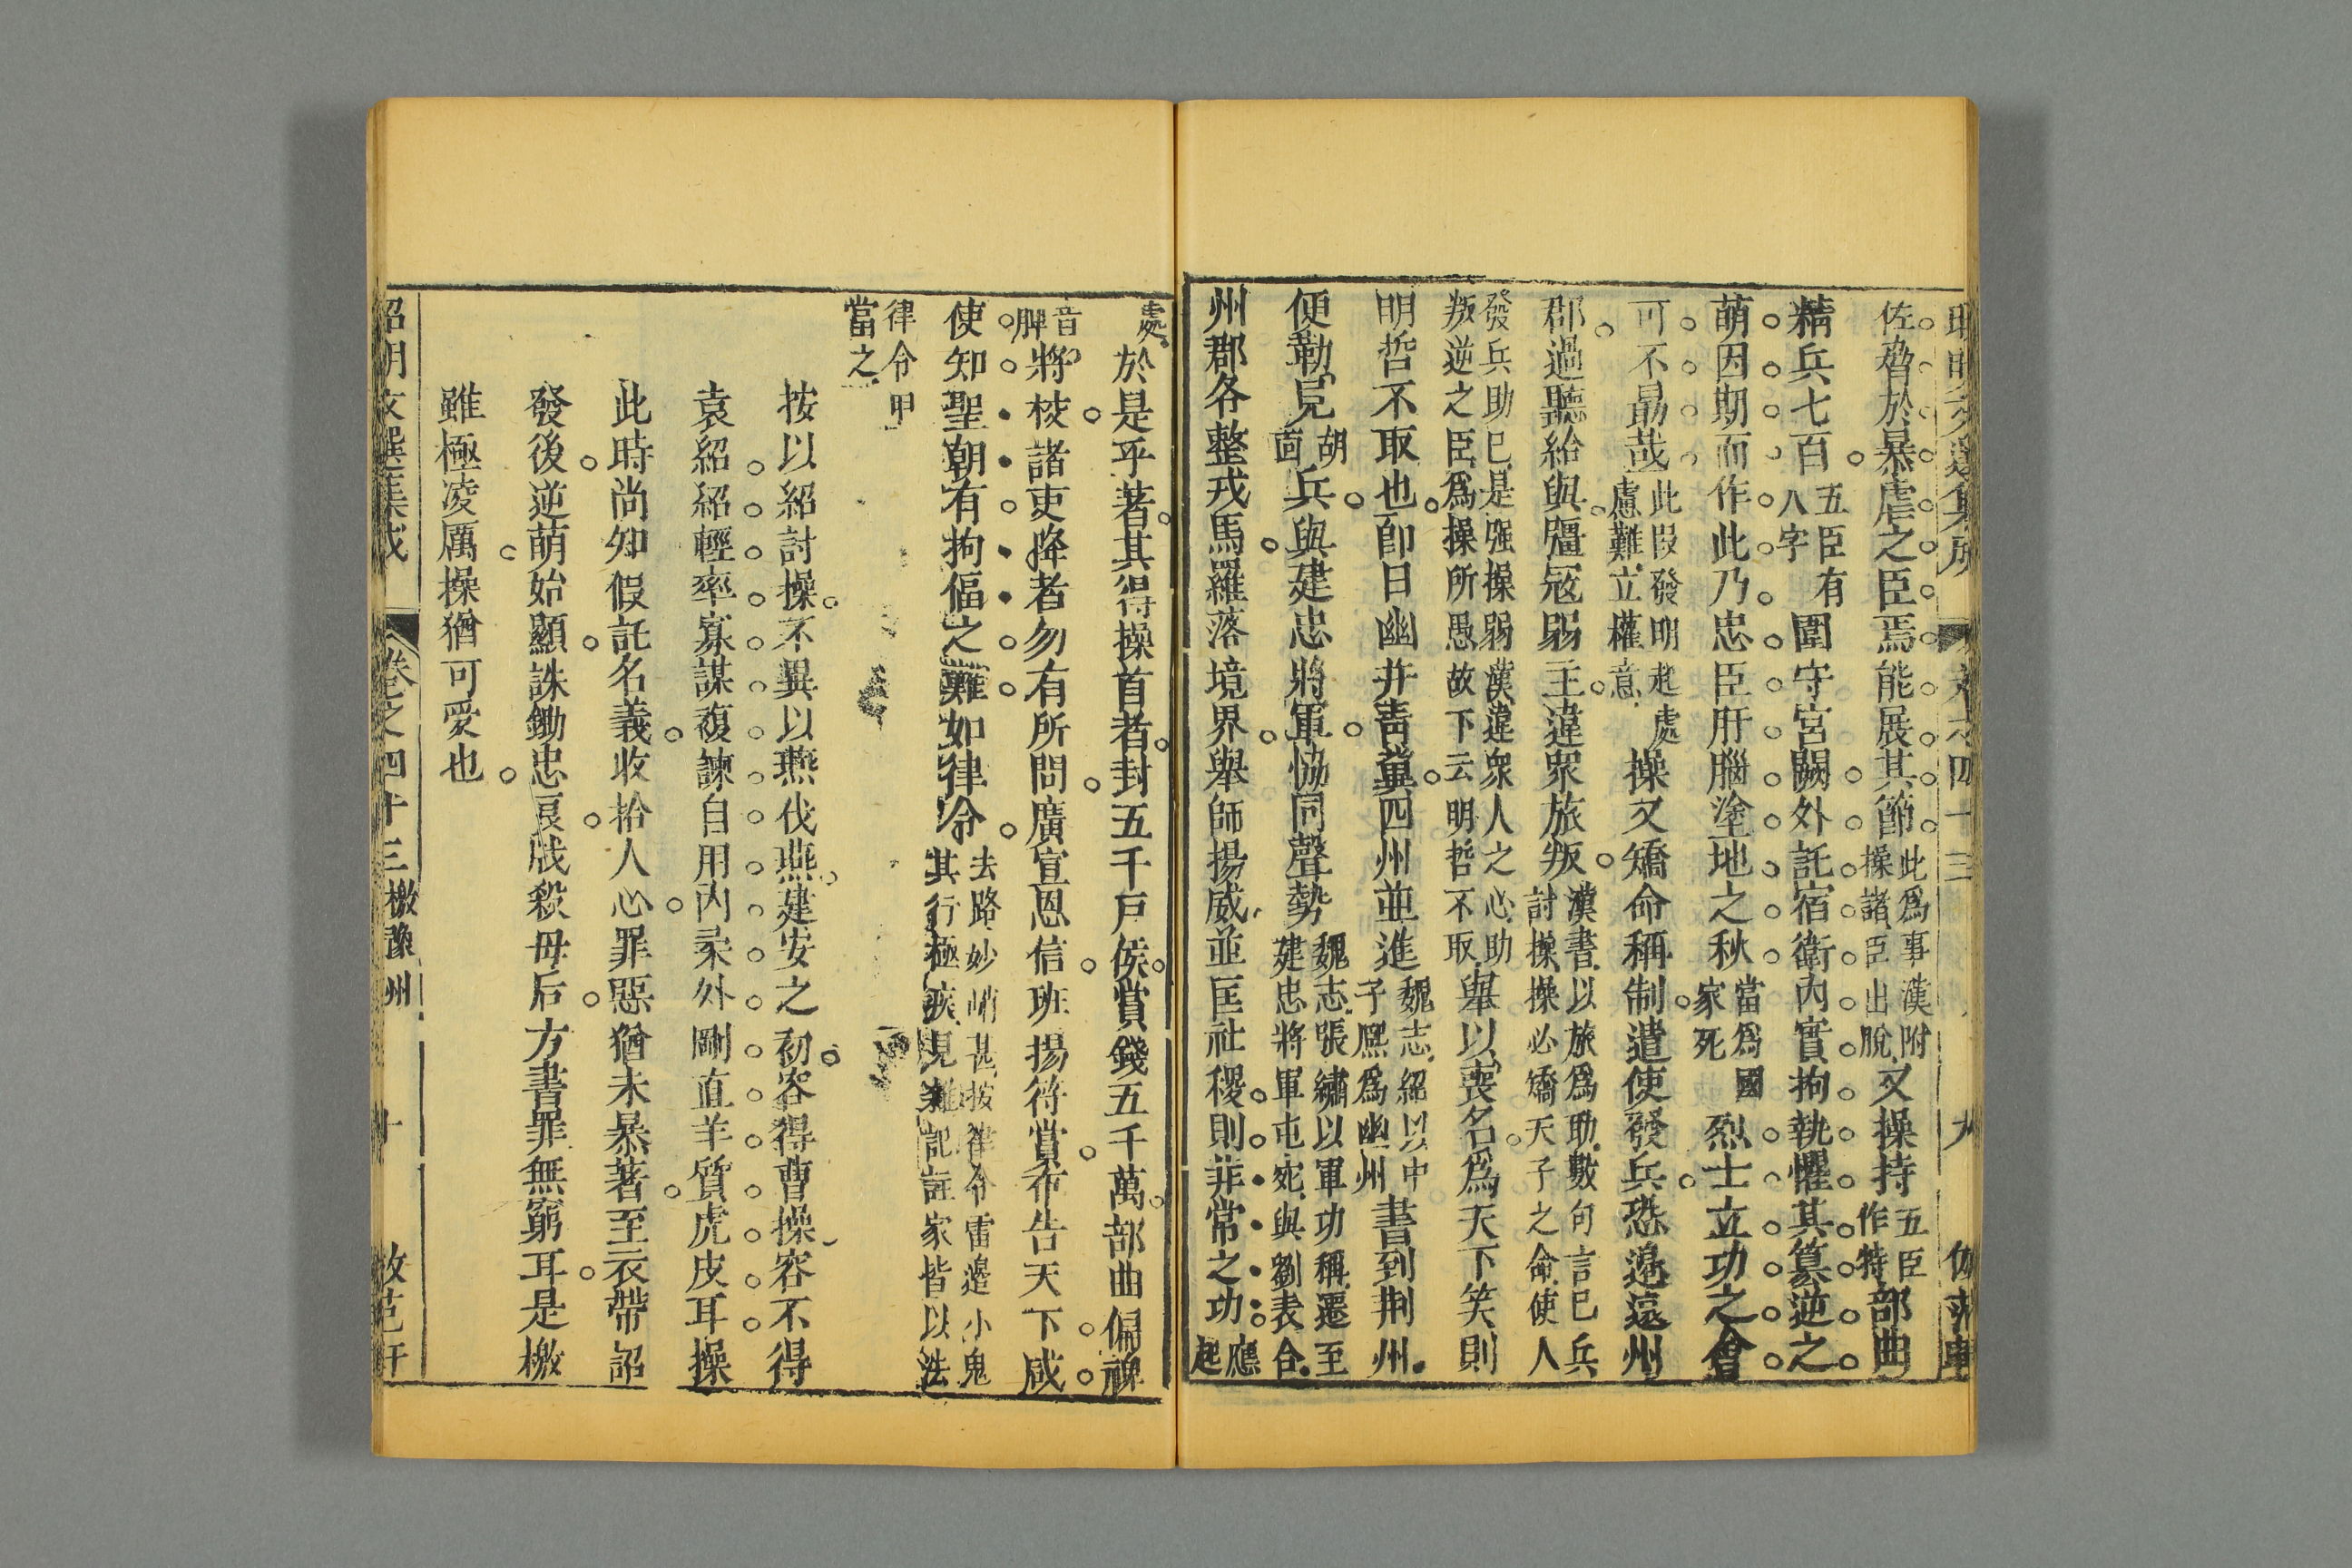 佐脅於暴虐之臣焉能展其節此爲事漢附操諸臣出脫又操持五臣作特部曲
精兵七百五臣有八字圍守宮闕外託宿衛內實拘執懼其篡逆之
萌因期而作此乃忠臣肝腦塗地之秋當爲國家死烈士立功之會
可不勗哉此段發明起處慮難立權意操又矯命稱制遣使發兵恐邉遠州
郡過聽給與彊寇弱主違衆旅叛漢書以旅爲助數句言已兵討操操必矯天子之命使人
發兵助已是强操弱漢違衆人之心助叛逆之臣爲操所愚故下云明哲不取舉以喪名爲天下笑則
明哲不取也卽日幽并靑冀四州並進魏志紹以中子熈爲幽州書到荆州
便勒見胡茴兵與建忠將軍恊同聲勢魏志張繡以軍功稱遷至建忠將軍屯宛與劉表合
州郡各整戎馬羅落境界舉師揚威並匡社稷則非常之功應起
處於是乎著其得操首者封五千戸侯賞錢五千萬部曲偏裨
音脾將校諸吏降者勿有所問廣宣恩信班揚符賞布告天下咸
使知聖朝有拘偪之難如律令去路妙峭甚按律令雷邉小鬼其行極疾見雜記註家皆以法
律令甲當之
按以紹討操不異以燕伐燕建安之初容得曹操容不得
袁紹紹輕率寡謀複諫自用內柔外剛直羊質虎皮耳操
此時尚知假託名義收拾人心罪惡猶未暴著至衣帶詔
發後逆萌始顯誅鋤忠良戕殺母后方書罪無窮耳是檄
雖極凌厲操猶可愛也
昭明文選集成 卷之四十三 檄豫州 十